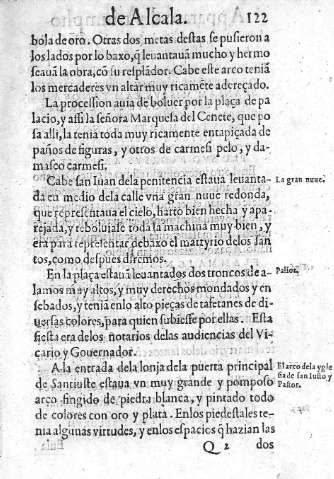 de Alcala. 122
bola de oro. Otras dos metas destas se pusieron a
los lados por lo baxo, q̃ leuantauã mucho y hermo
seauã la obra, cõ su resplãdor. Cabe este arco teniã
los mercaderes vn altar muy ricamẽte adereçado.
La procession auia de boluer por la plaça de pa
lacio, y assi la señora Marquesa del Cenete, que po
sa alli, la tenia toda muy ricamente entapiçada de
paños de figuras, y otros de carmesi pelo, y da-
masco carmesi.
Cabe san Iuan dela penitencia estaua leuanta-
da en medio dela calle vna gran nuue redonda,
que representaua el cielo, harto bien hecha y apa-
rejada, y reboluiase toda la machina muy bien, y
era para representar debaxo el martyrio delos san
tos, como despues diremos.
La gran nuue.
En la plaça estauã leuantados dos troncos de a-
lamos muy altos, y muy derechos mondados y en
sebados, y tenian enlo alto pieças de tafetanes de di-
uersas colores, para quien subiesse por ellas. Esta
fiesta era delos notarios delas audiencias del Vi-
cario y Gouernador.
A la entrada dela lonja dela puerta principal
de Santiuste estaua vn muy grande y pomposo
arco fingido de piedra blanca, y pintado todo
de colores con oro y plata. Enlos piedestales te-
nia algunas virtudes, y enlos espacios q̃ hazian las
El arco dela ygle
sia de san Iusto y
Pastor.
Q 2 dos